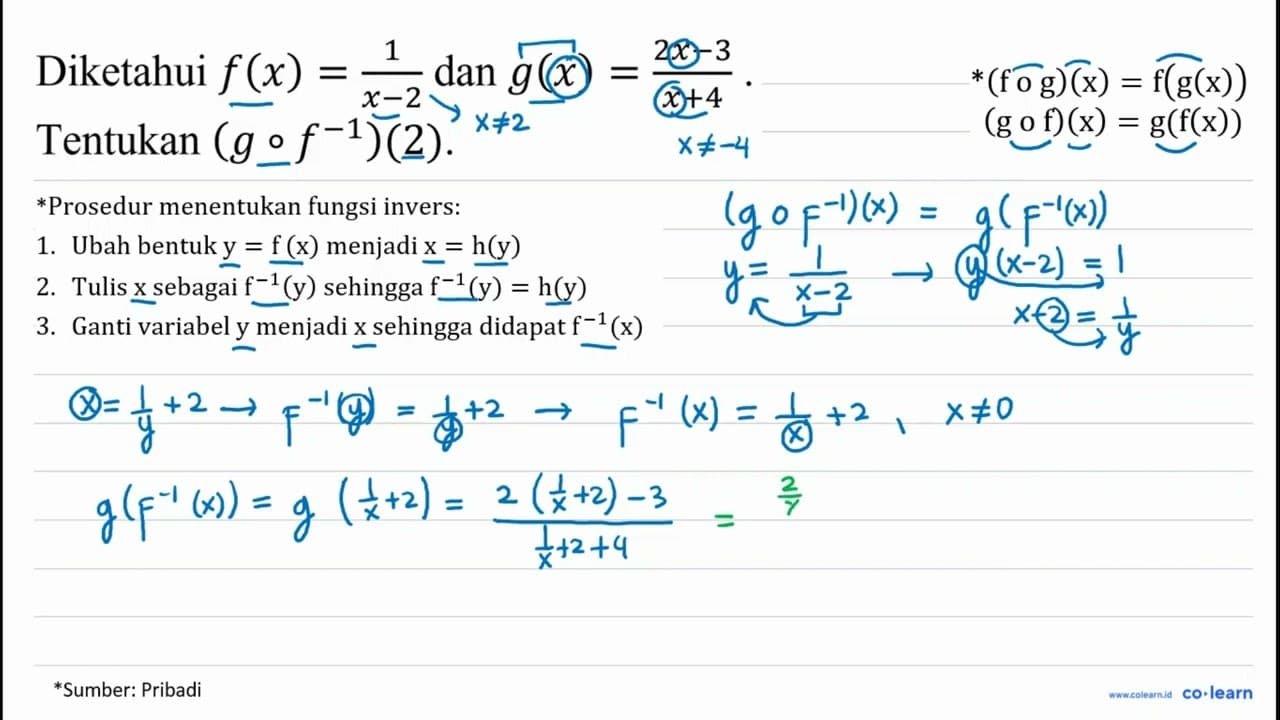 Diketahui f(x) = 1/(x−2) dan g(x) = (2x−3)/(x+4) .
x≠2
x≠-4
Tentukan (g ∘ f⁻¹)(2).
*(f o g)(x) = f(g(x))
(g o f)(x) = g(f(x))
*Prosedur menentukan fungsi invers:
1. Ubah bentuk y = f (x) menjadi x = h(y)
2. Tulis x sebagai f⁻¹(y) sehingga f⁻¹(y) = h(y)
3. Ganti variabel y menjadi x sehingga didapat f⁻¹(x)
(g o F⁻¹)(x) = g(F⁻¹(x))
y = 1/(x-2) → y(x-2) = 1
x-2 = 1/y
x = 1/y +2 → F⁻¹(y) = 1/y +2 → F⁻¹(x) = 1/x +2 , x≠0
g(F⁻¹(x)) = g(1/x +2) = (2(1/x +2) -3)/(1/x +2+4) = 2/
*Sumber: Pribadi
www.colearn.id co·learn